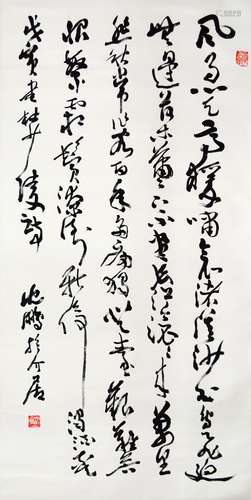 風急天高猿嘯哀渚清沙白鳥飛迴
無邊落木蕭〻下不盡長江滾〻來萬里
悲秋常作客百年多病獨登臺艱難苦
恨繁霜鬢潦倒新停濁酒杯
戊寅書杜少陵詩 沈鵬於介居